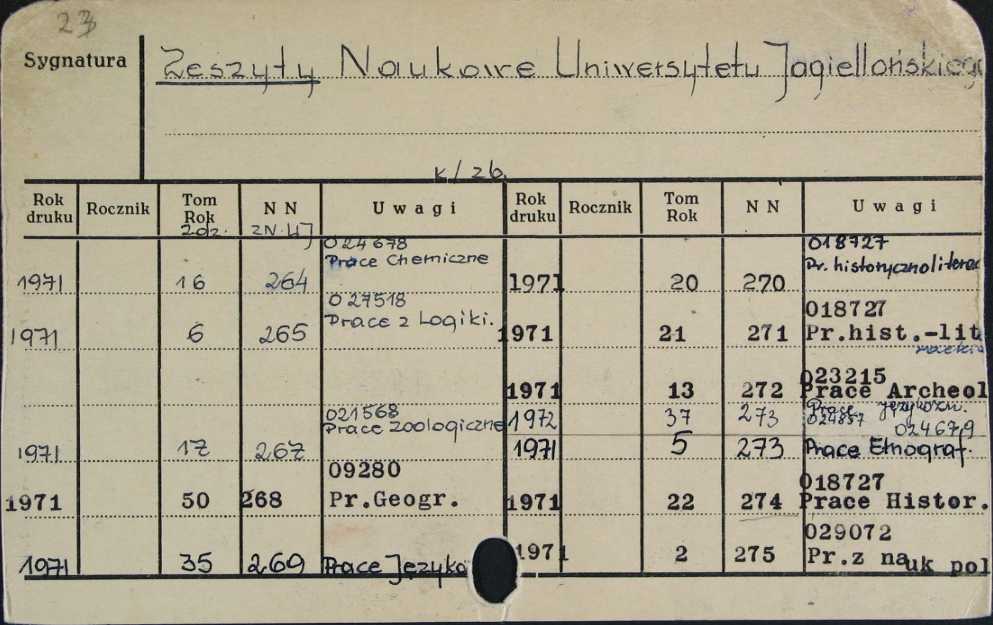 23
Sygnatura
Zeszyty Naukowe Uniwersytetu Jagiellońskiego
k/zb.
Rok druku Rocznik Tom Rok N N Uwagi Rok druku Rocznik Tom Rok N N Uwagi
Zesz. ZN.UJ
024678 018727
Prace Chemiczne Pr. historycznoliterac
1971 16 264 1971 20 270
027518 018727
1971 6 265 Prace z Logiki. 1971 21 271 Pr.hist.-lit
023215
1971 13 272 Prace Archeol
021568 1972 37 273 Prace językozn.
Prace zoologiczne 024857 024679
1971 17 267 1971 5 273 Prace Etnograf.
09280 018727
1971 50 268 Pr.Geogr. 1971 22 274 Prace Histor.
029072
1971 35 269 Prace Języko 1971 2 275 Pr.z nauk pol